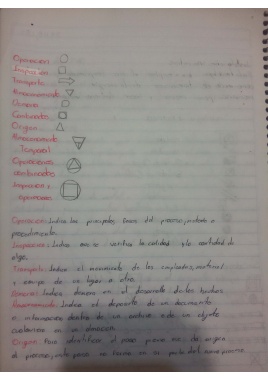 Operación
Inspección
Transporte
Almacenamiento
Demora
Combinados
Origen
Almacenamiento
Temporal
Operaciones
combinadas
Inspección y
operaciones
Operación: Indica las principales fases del proceso, método o
procedimiento.
Inspección: Indica que se verifica la calidad y/o cantidad de
algo.
Transporte: Indica el movimiento de los empleados, material
y equipo de un lugar a otro.
Demora: Indica demora en el desarrollo de los hechos.
Indica el deposito de un documento
o información dentro de un archivo o de un objeto
cualquiera en un almacen.
Origen: Para identificar el paso previo
el proceso, este paso no forma en si parte del nuevo proceso